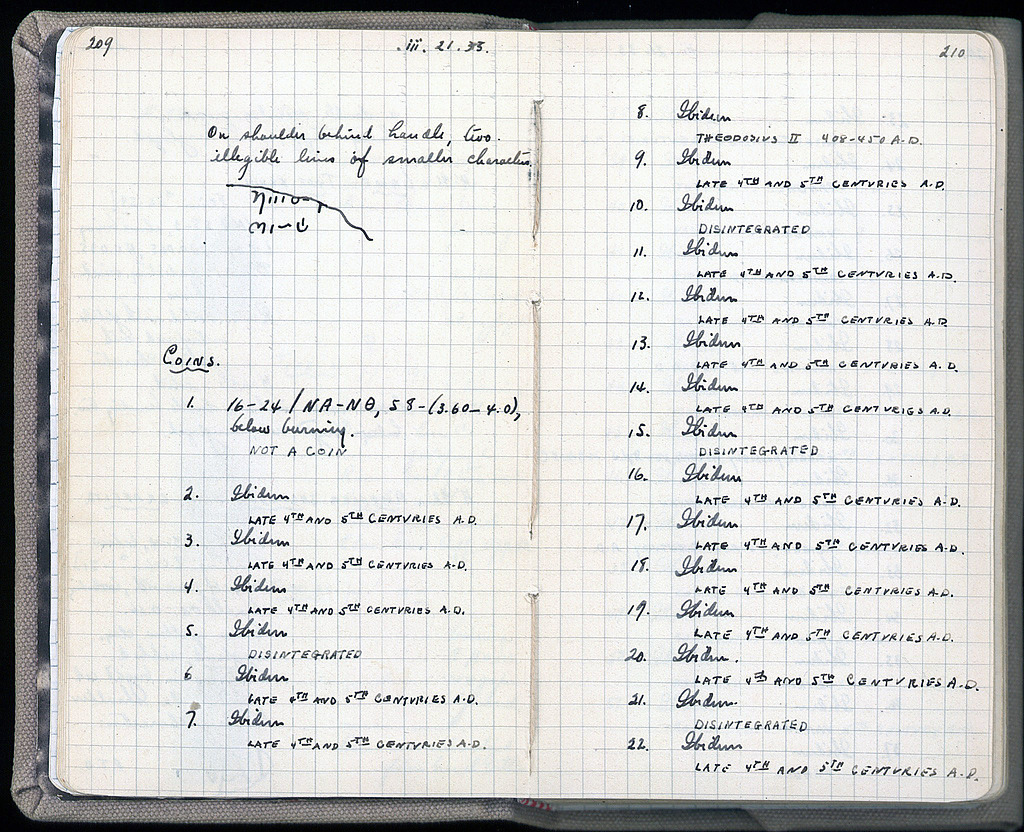 209
iii. 21. 33.
On shoulder behind handle, two
illegible lines of smaller characters.
Coins.
1. 16-24/ΝΑ-ΝΘ, 58-(3.60-4.0),
below burning.
NOT A COIN
2. Ibidem
LATE 4TH AND 5TH CENTVRIES A.D.
3. Ibidem
LATE 4TH AND 5TH CENTVRIES A.D.
4. Ibidem
LATE 4TH AND 5TH CENTVRIES A.D.
5. Ibidem
DISINTEGRATED
6 Ibidem
LATE 4TH AND 5TH CENTVRIES A.D.
7. Ibidem
LATE 4TH AND 5TH CENTVRIES A.D.
210
8. Ibidem
THEODOSIVS II 408-450 A.D.
9. Ibidem
LATE 4TH AND 5TH CENTVRIES A.D.
10. Ibidem
DISINTEGRATED
11. Ibidem
LATE 4TH AND 5TH CENTVRIES A.D.
12. Ibidem
LATE 4TH AND 5TH CENTVRIES A.D.
13. Ibidem
LATE 4TH AND 5TH CENTVRIES A.D.
14. Ibidem
LATE 4TH AND 5TH CENTVRIES A.D.
15. Ibidem
DISINTEGRATED
16. Ibidem
LATE 4TH AND 5TH CENTVRIES A.D.
17. Ibidem
LATE 4TH AND 5TH CENTVRIES A.D.
18. Ibidem
LATE 4TH AND 5TH CENTVRIES A.D.
19. Ibidem
LATE 4TH AND 5TH CENTVRIES A.D.
20. Ibidem.
LATE 4TH AND 5TH CENTVRIES A.D.
21. Ibidem.
DISINTEGRATED
22. Ibidem
LATE 4TH AND 5TH CENTVRIES A.D.